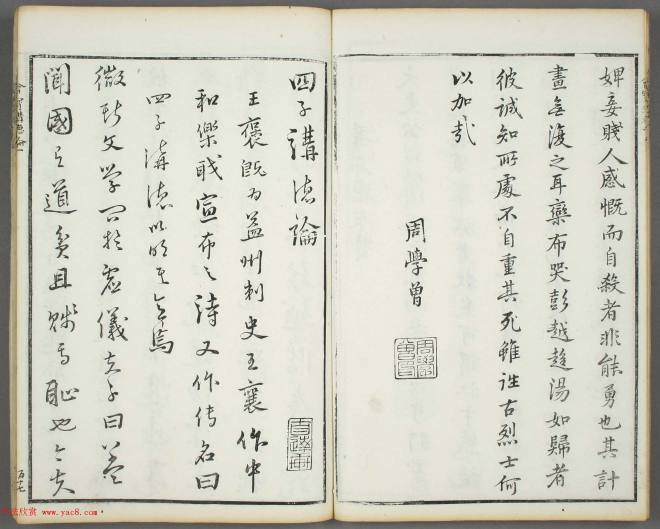 婢妾賤人感慨而自殺者非能勇也其計
畫無復之耳欒布哭彭越趨湯如歸者
彼誠知所處不自重其死雖往古烈士何
以加哉
周學曾
周學曾
四子講德論
王褒既為益州刺史王襄作中
和樂職宣布之詩又作传名曰
四子講德以明其意焉
微斯文學問於虛儀夫子曰蓋
聞國有道貧且賤焉恥也今夫
www.yac8.com